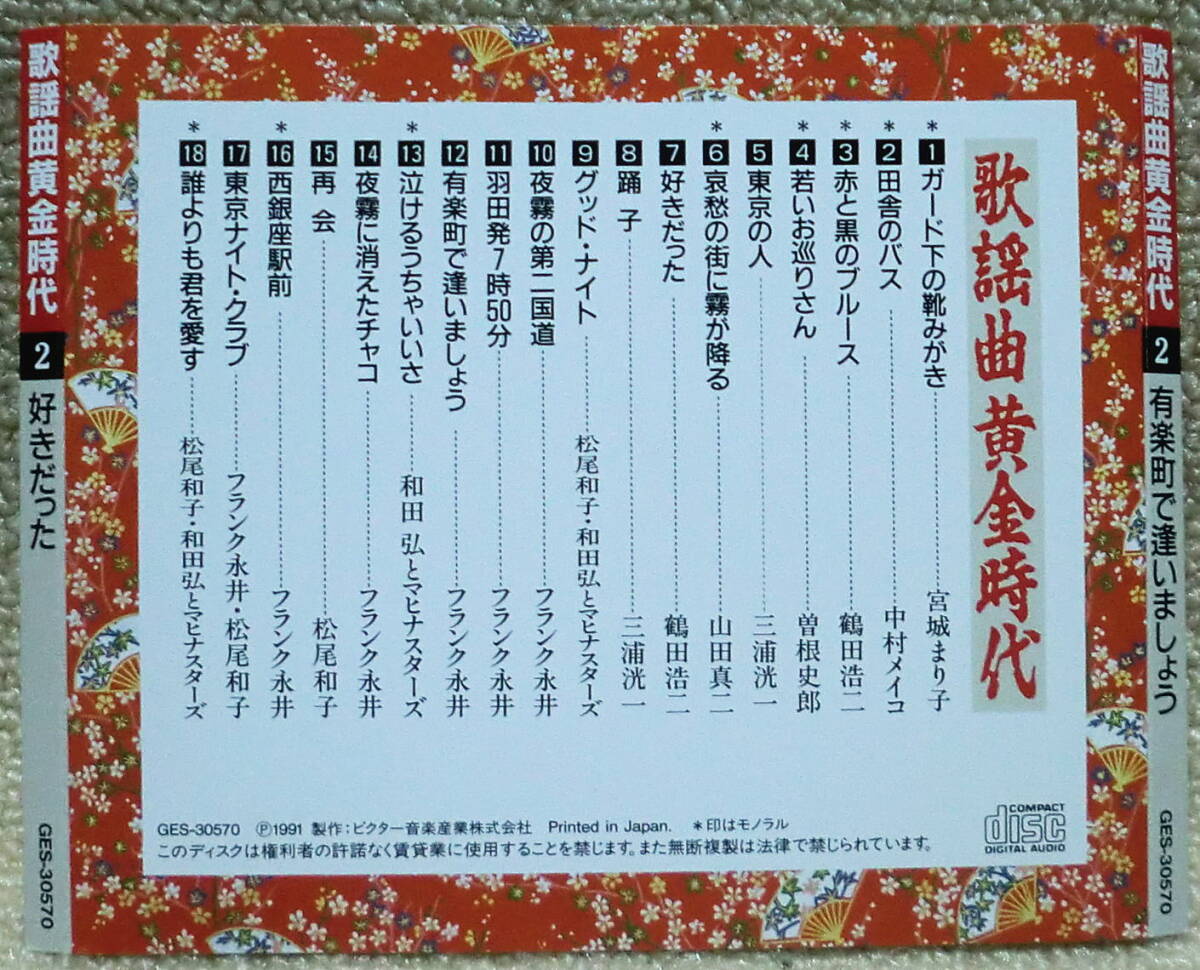 歌謡曲黄金時代
＊1ガード下の靴みがき……宮城まり子
＊2田舎のバス……中村メイコ
＊3赤と黒のブルース……鶴田浩二
＊4若いお巡りさん……曽根史郎
5東京の人……三浦洸一
＊6哀愁の街に霧が降る……山田真二
7好きだった……鶴田浩二
8踊 子……三浦洸一
＊9グッド・ナイト……松尾和子・和田弘とマヒナスターズ
10夜霧の第二国道……フランク永井
11羽田発7時50分……フランク永井
12有楽町で逢いましょう……フランク永井
＊13泣けるうちゃいいさ……和田 弘とマヒナスターズ
14夜霧に消えたチャコ……フランク永井
15再 会……松尾和子
＊16西銀座駅前……フランク永井
17東京ナイト・クラブ……フランク永井・松尾和子
＊18誰よりも君を愛す……松尾和子・和田弘とマヒナスターズ
GES-30570 ℗1991 製作：ビクター音楽産業株式会社 Printed in Japan. ＊印はモノラル
このディスクは権利者の許諾なく賃貸業に使用することを禁じます。また無断複製は法律で禁じられています。
COMPACT
disc
DIGITAL AUDIO
歌謡曲黄金時代 2 有楽町で逢いましょう GES-30570
歌謡曲黄金時代 2 好きだった GES-30570